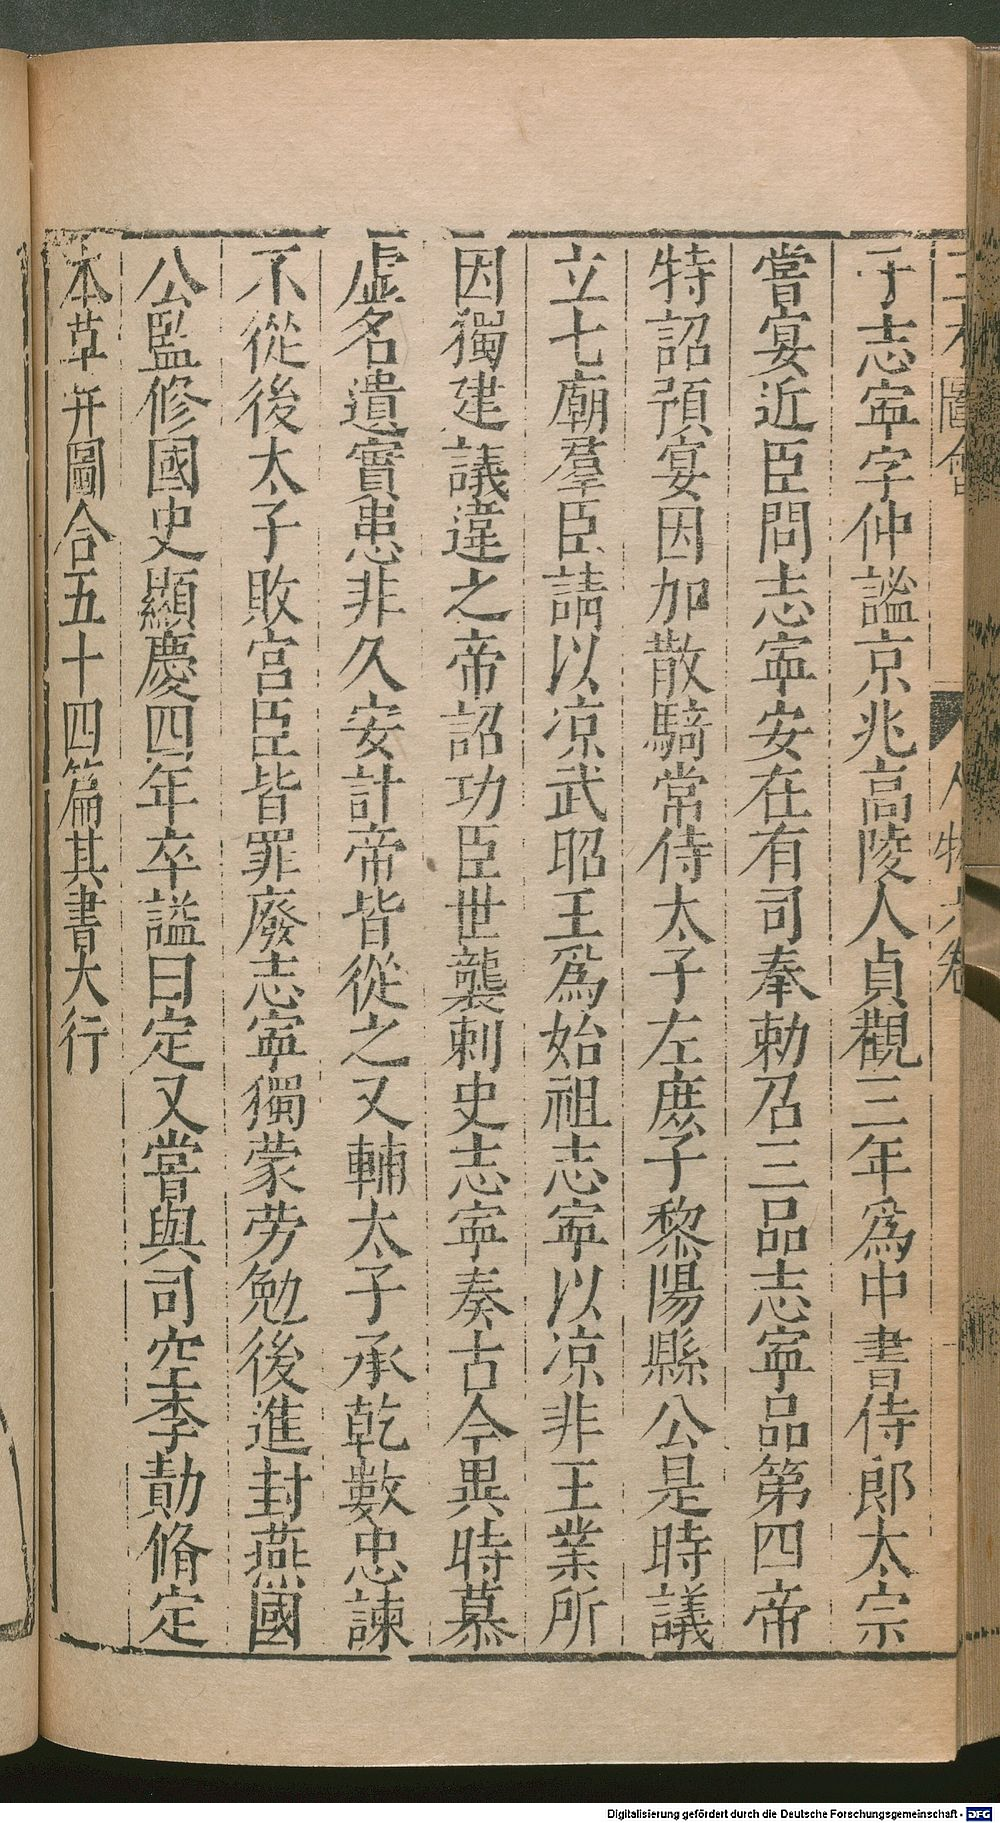 三才圖會 人物六卷
于志寧字仲謐京兆高陵人貞觀三年爲中書侍郎太宗
嘗宴近臣問志寧安在有司奉勅召三品志寧品第四帝
特詔預宴因加散騎常侍太子左庶子黎陽縣公是時議
立七廟羣臣請以凉武昭王爲始祖志寧以凉非王業所
因獨建議違之帝詔功臣世襲刺史志寧奏古今異時慕
虛名遺實患非久安計帝皆從之又輔太子承乾數忠諫
不從後太子敗宮臣皆罪廢志寧獨蒙勞勉後進封燕國
公監修國史顯慶四年卒謚曰定又嘗與司空李勣脩定
本草并圖合五十四篇其書大行
Digitalisierung gefördert durch die Deutsche Forschungsgemeinschaft - DFG